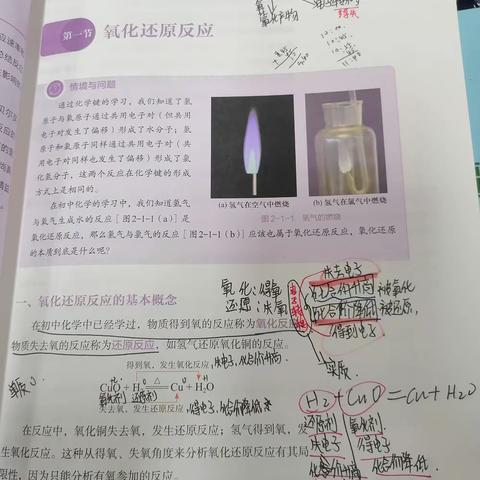 氧化产物
第一节 氧化还原反应
情境与问题
通过化学键的学习，我们知道了氢
原子与氧原子通过共用电子对（但共用
电子对发生了偏移）形成了水分子；氢
原子和氯原子同样通过共用电子对（共
用电子对同样也发生了偏移）形成了氯
化氢分子，这两个反应在化学键的形成
方式上是相同的。
在初中化学的学习中，我们知道氢气
与氧气生成水的反应［图2-1-1（a）］是
氧化还原反应，那么氢气与氯气的反应［图2-1-1（b）］应该也属于氧化还原反应，氧化还原
的本质到底是什么呢？
(a) 氢气在空气中燃烧 (b) 氢气在氯气中燃烧
图2-1-1 氢气的燃烧
氧化：得氧
还原：失氧
失去电子
化合价升高 被氧化
化合价降低 被还原
得到电子
实质
一、氧化还原反应的基本概念
在初中化学中已经学过，物质得到氧的反应称为氧化反应
物质失去氧的反应称为还原反应，如氢气还原氧化铜的反应。
得到氧，发生氧化反应 失电子，化合价升高
CuO + H₂ △ Cu + H₂O
氧化剂 还原剂
失去氧，发生还原反应 得电子，化合价降低
H2 + CuO = Cu + H2O
还原剂 氧化剂
失电子 得电子
化合价升高 化合价降低
在反应中，氧化铜失去氧，发生还原反应；氢气得到氧，发
生氧化反应。这种从得氧、失氧角度来分析氧化还原反应有其局
限性，因为只能分析有氧参加的反应。